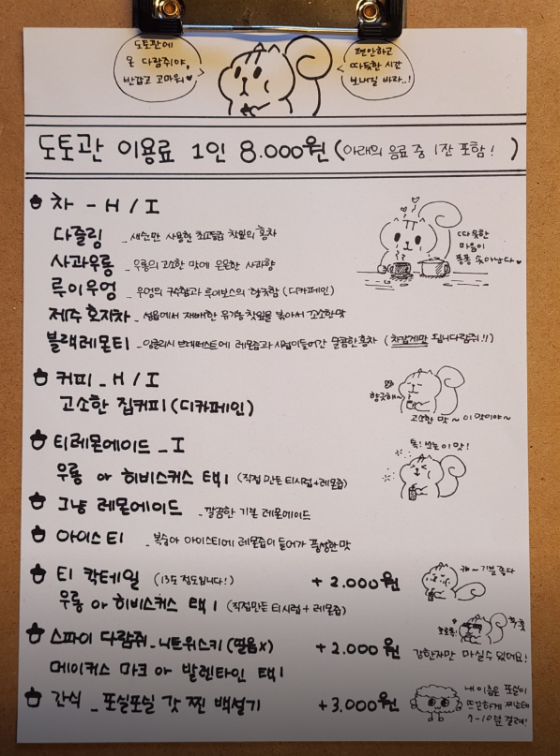 도토관에
온 다람쥐야,
반갑고 고마워♥
편안하고
따듯한 시간
보내길 바라..!
도토관 이용료 1인 8.000원 (아래의 음료 중 1잔 포함! )
차 - H / I
다즐링 _ 새순만 사용한 최고등급 찻잎의 홍차
사과우롱 _ 우롱의 고소한 맛에 은은한 사과향
루이우엉 _ 우엉의 구수함과 루이보스의 향긋함 (디카페인)
제주 호지차 _ 섬음에서 재배한 유기농 찻잎을 볶아서 고소한맛
블랙레몬티 _ 잉글리시 브랙퍼스트에 레몬즙과 시럽이들어간 달콤한홍차 (차갑게만 됩니다람쥐.!!)
따듯한
마음이
퐁퐁 솟아난다♥
커피 _ H / I
고소한 집커피 (디카페인)
향긋해~
고소한 맛 ~ 이 맛이야~
티레몬에이드 _ I
우롱 or 히비스커스 택1 (직접 만든 티시럽+레몬즙)
그냥 레몬에이드 _ 깔끔한 기본 레몬에이드
아이스티 _ 복숭아 아이스티에 레몬즙이 들어가 풍성한맛
티 칵테일 (13도 정도입니다!) + 2.000원
우롱 or 히비스커스 택1 (직접만든 티시럽 + 레몬즙)
캬~ 기분 좋다
스파이 다람쥐 _ 니트위스키 (얼음X) + 2.000원
메이커스 마크 or 발렌타인 택1
강한자만 마실수 있어요!
간식 _ 포실포실 갓 찐 백설기 +3.000원
내 이름은 포실이
뜨끈하게 쪄낼테니
7~10분 걸려!